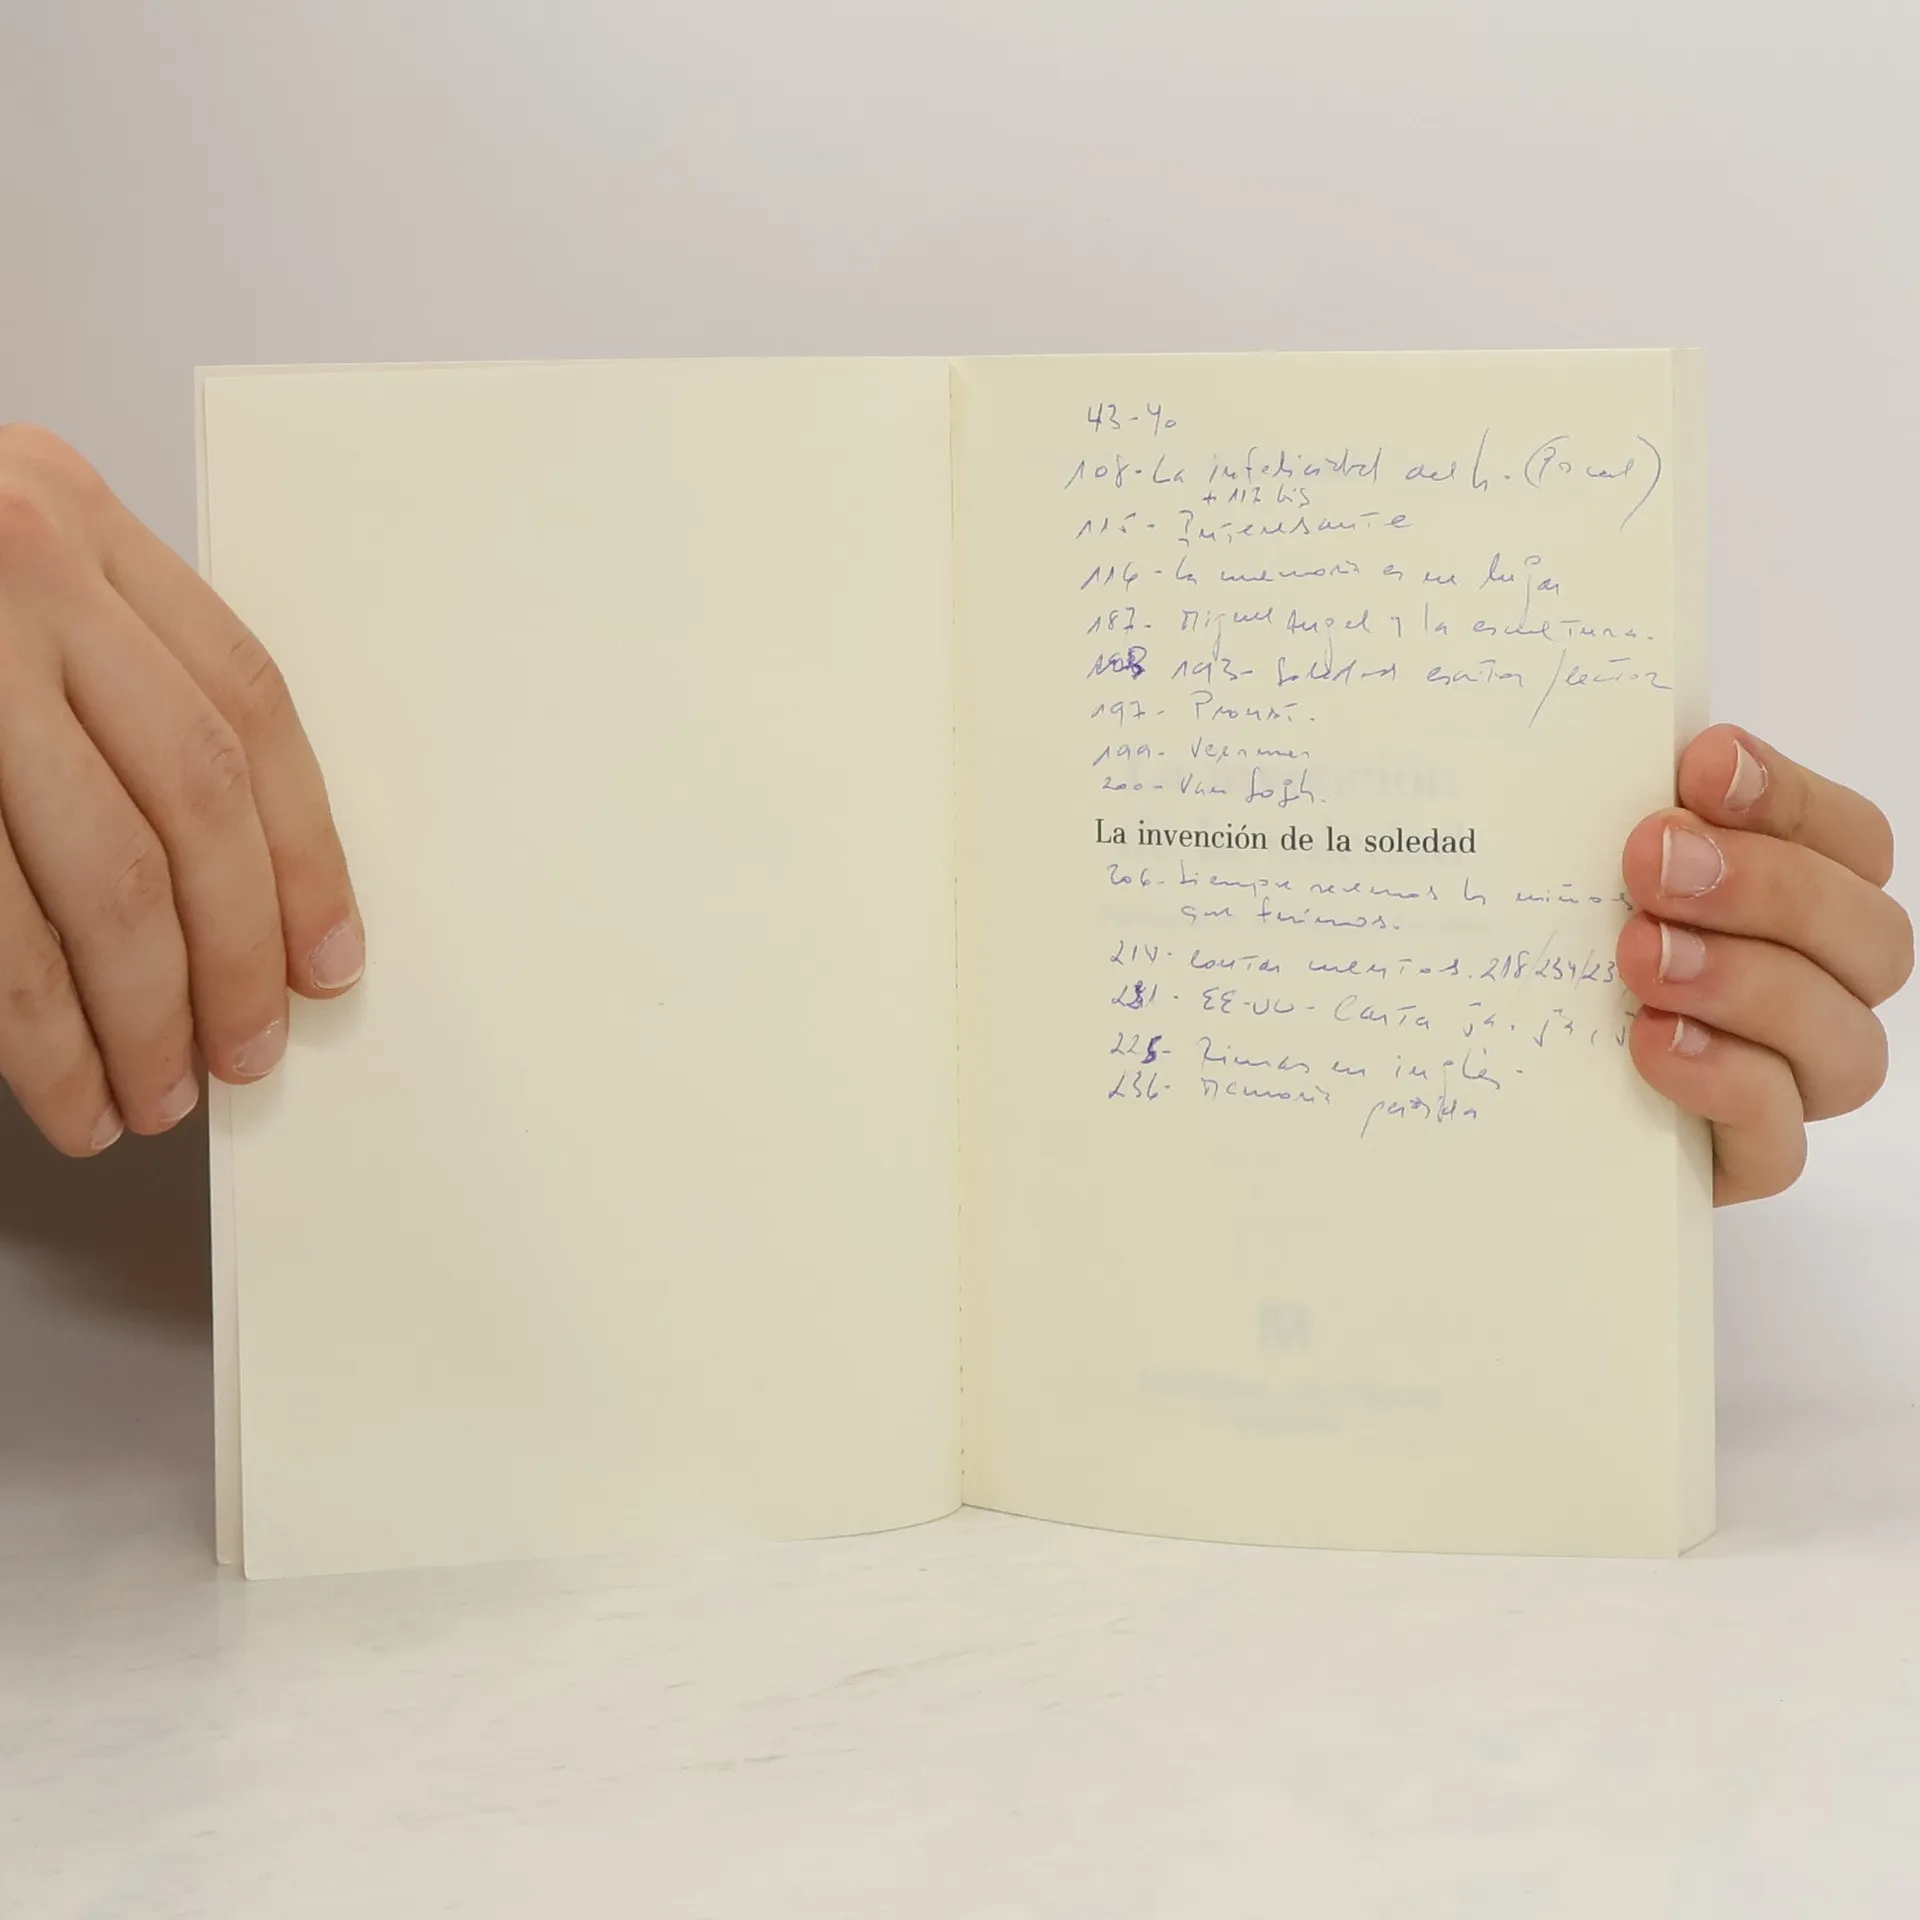 43-Yo
108-La infelicidad del h. (Pascal)
+ 117 bis
115- Interesante
116-la memoria es un lugar
187- Miguel Angel y la escultura.
193- Soledad escritor/lector
197- Proust.
199- Vermeer
200- Van Gogh.
La invención de la soledad
206- Siempre seremos los niños
que fuimos.
214- contar cuentos. 218/234/23
231- EE-UU- Carta ja. ja,
225- Rimas en inglés-
236- Memoria perdida